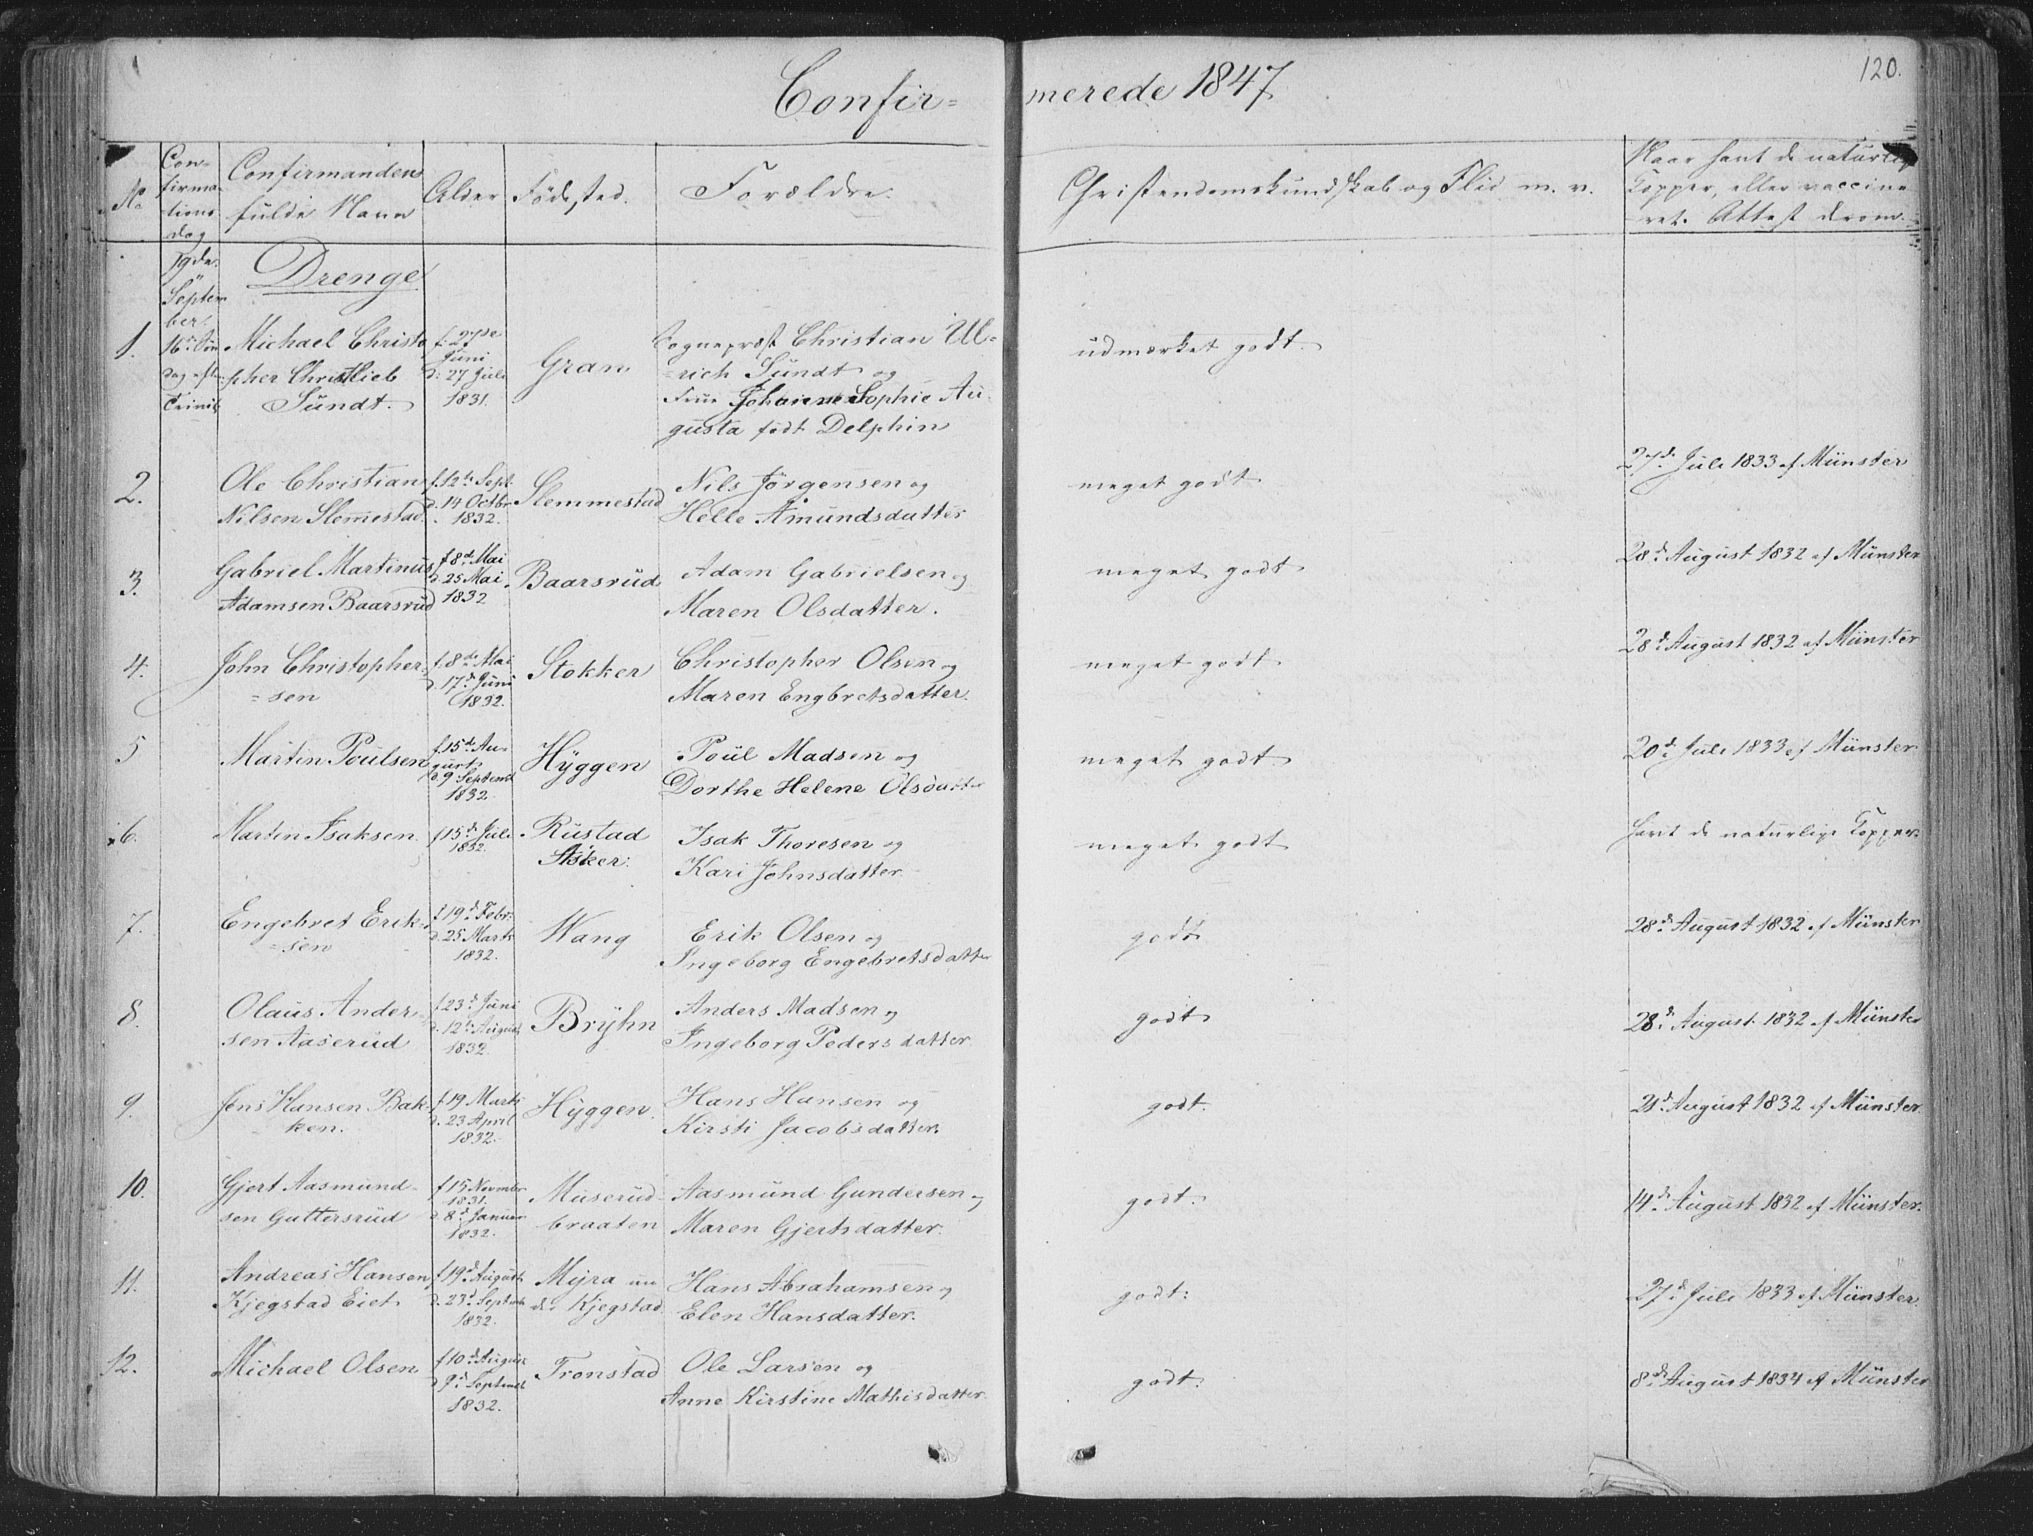 Confir= merede 1847
120.
No
Con-
firma-
tions
dag
Confirmandens
fulde Navn
Alder
Fødested.
Forældre.
Christendomskundskab og Flid m. v.
Naar havt de naturlige
Kopper, eller vaccine-
ret. Attest derom.
19de
Septem
ber.
16de Søn
dag eft
Trinit
Drenge
1. Michael Christo
pher Christlieb
Sundt.
f. 27de
Juni
d. 27 Juli
1831.
Gran
Sognepræst Christian Ul=
=rich Sundt og
Frue Johanne Sophie Au
gusta født Delphin
udmærket godt.
2. Ole Christian
Nilsen Slemestad.
f. 12te Sept.
d. 14 Octbr
1832.
Slemmestad
Nils Jørgensen og
Helle Amundsdatter
meget godt
27de Juli 1833 af Münster
3. Gabriel Martinus
Adamsen Baarsrud
f. 8de Mai
d. 25 Mai
1832
Baarsrud
Adam Gabrielsen og
Maren Olsdatter.
meget godt
28de August 1832 af Münster
4. John Christopher-
=sen
f. 8de Mai
d. 17de Juni
1832.
Stokker
Christopher Olsen og
Maren Engbretsdatter.
meget godt
28de August 1832 af Münster
5 Martin Poulsen
f. 15de Au-
gust
d. 9 Septemb
1832.
Hyggen
Poul Madsen og
Dorthe Helene Olsdatter
meget godt
20de Juli 1833 af Münster.
6. Martin Isaksen.
f. 15de Juli
1832.
Rustad
Asker.
Isak Thoresen og
Kari Johnsdatter.
meget godt
havt de naturlige Kopper.
7. Engebret Erik-
=sen
f. 19de Febr.
d. 25 Marts
1832.
Wang
Erik Olsen og
Ingeborg Engebretsdatter
godt
28de August 1832 af Münster
8. Olaus Ander-
sen Aaserud
f. 23de Juni
d. 12te August
1832.
Bryhn
Anders Madsen og
Ingeborg Pedersdatter.
godt
28de August 1832 af Münster
9. Jens Hansen Bak
ken.
f. 19 Marts
d. 23 April
1832.
Hyggen.
Hans Hansen og
Kirsti Jacobsdatter.
godt.
21de August 1832 af Münster.
10. Gjert Aasmund-
sen Guttersrud
f. 15 Novmbr
1831.
d. 8de Januar
1832.
Muserud-
braaten
Aasmund Gundersen og
Maren Gjertsdatter.
godt.
14de August 1832 af Münster.
11. Andreas Hansen
Kjegstad Eiet.
f. 19de August
d. 23de Septmb
1832.
Myra un
der Kjegstad
Hans Abrahamsen og
Elen Hansdatter.
godt.
27de Juli 1833 af Münster.
12. Michael Olsen
f. 10de August
d. 9de Septemb
1832.
Tronstad
Ole Larsen og
Anne Kirstine Mathisdatter.
godt.
8de August 1834 af Münster